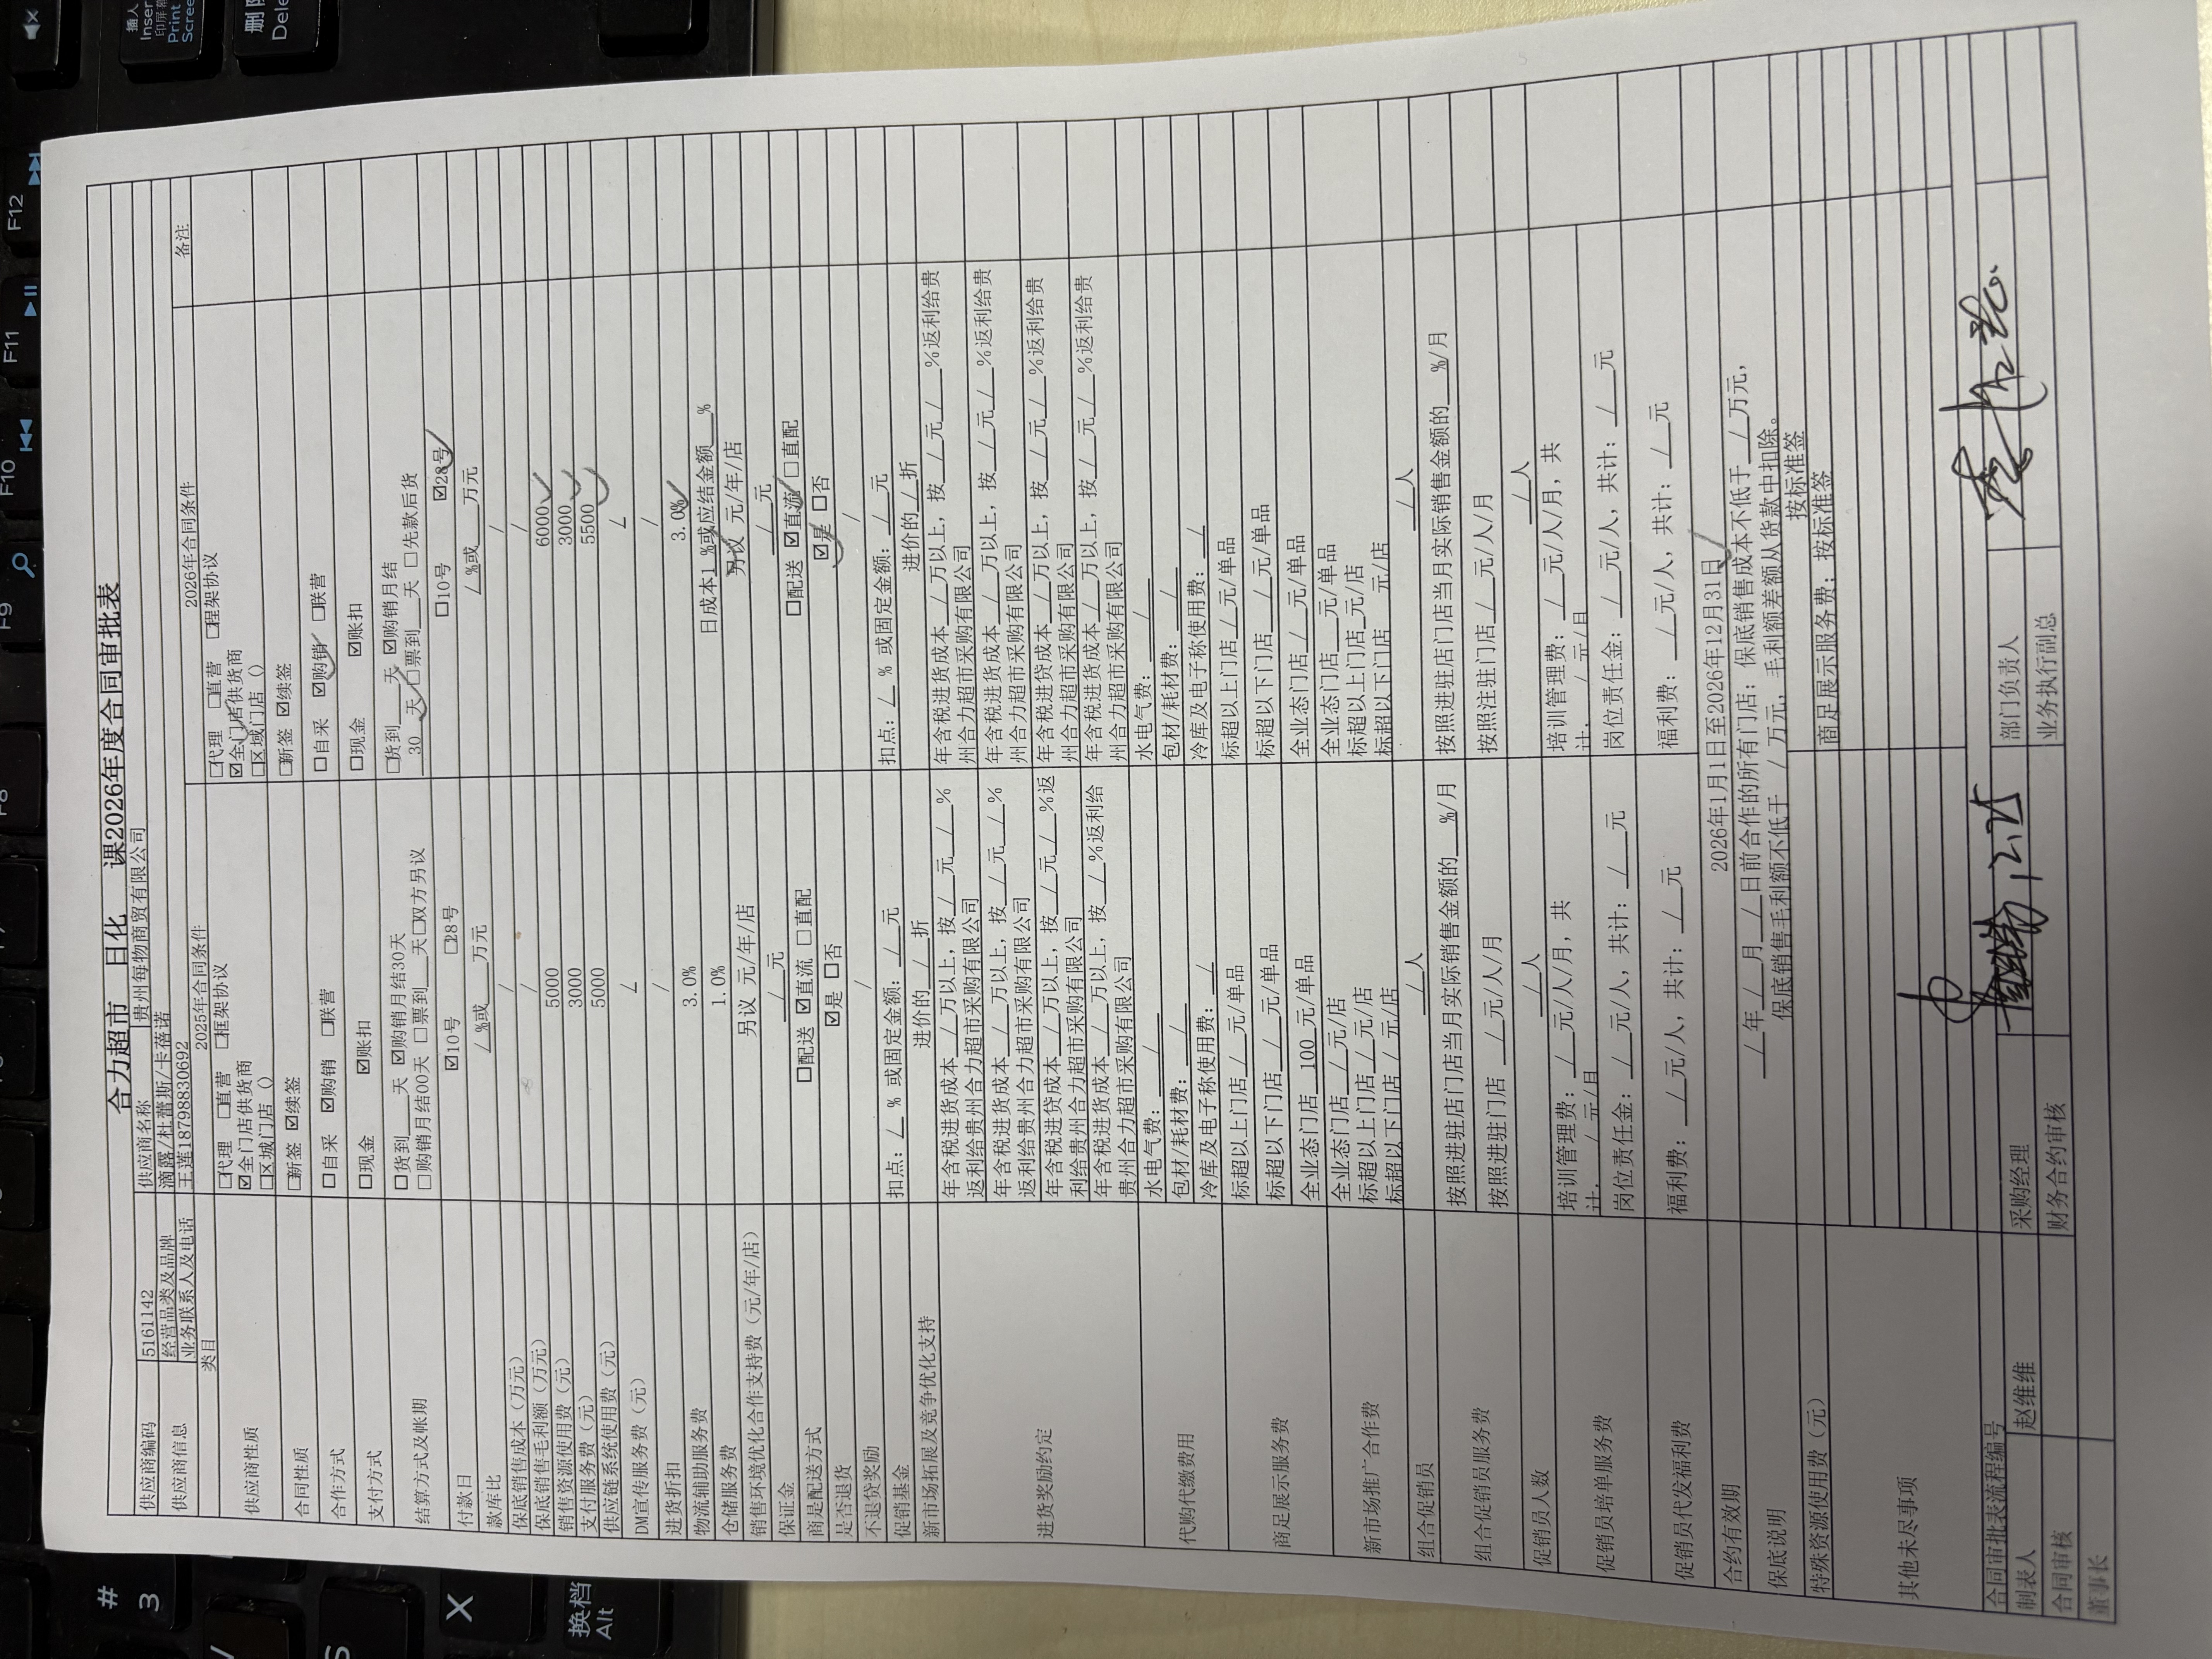 合力超市 日化 课2026年度合同审批表
供应商编码 5161142 供应商名称 贵州每物商贸有限公司
供应商信息 经营品类及品牌 滴露/杜蕾斯/卡蓓诺
业务联系人及电话 王莲18798830692
类目 2025年合同条件 2026年合同条件 备注
供应商性质 □代理 □直营 □框架协议 □代理 □直营 □程架协议
☑全门店供货商 ☑全门店供货商
□区城门店（） □区域门店（）
合同性质 □新签 ☑续签 □新签 ☑续签
合作方式 □自采 ☑购销 □联营 □自采 ☑购销 □联营
支付方式 □现金 ☑账扣 □现金 ☑账扣
结算方式及帐期 □货到___天 ☑购销月结30天 □货到___天 ☑购销月结
□购销月结00天 □票到___天□双方另议 30 天 □票到___天 □先款后货
付款日 ☑10号 □28号 □10号 ☑28号
款库比 / %或___万元 / %或___万元
保底销售成本（万元） / /
保底销售毛利额（万元） / /
销售资源使用费（元） 5000 6000
支付服务费（元） 3000 3000
供应链系统使用费（元） 5000 5500
DM宣传服务费（元） / /
进货折扣 / /
物流辅助服务费 3.0% 3.0%
仓储服务费 1.0% 日成本1 %或应结金额___%
销售环境优化合作支持费（元/年/店） 另议 元/年/店 另议 元/年/店
保证金 / 元 / 元
商是配送方式 □配送 ☑直流 □直配 □配送 ☑直流 □直配
是否退货 ☑是 □否 ☑是 □否
不退贷奖励 / /
促销基金 扣点：/ % 或固定金额：/ 元 扣点：/ % 或固定金额：/ 元
新市场拓展及竞争优化支持 进价的 / 折 进价的 / 折
进货奖励约定 年含税进货成本 / 万以上，按 / 元 / % 年含税进货成本 / 万以上，按 / 元 / %返利给贵
返利给贵州合力超市采购有限公司 州合力超市采购有限公司
年含税进货成本 / 万以上，按 / 元 / % 年含税进货成本 / 万以上，按 / 元 / %返利给贵
返利给贵州合力超市采购有限公司 州合力超市采购有限公司
年含税进贷成本 / 万以上，按 / 元 / %返 年含税进贷成本 / 万以上，按 / 元 / %返利给贵
利给贵州合力超市采购有限公司 州合力超市采购有限公司
年含税进货成本___万以上，按 / %返利给 年含税进货成本 / 万以上，按 / 元 / %返利给贵
贵州合力超市采购有限公司 州合力超市采购有限公司
代购代缴费用 水电气费：/ 水电气费：/
包材/耗材费：/ 包材/耗材费：/
冷库及电子称使用费：/ 冷库及电子称使用费：/
商足展示服务费 标超以上门店 / 元/单品 标超以上门店 / 元/单品
标超以下门店 / 元/单品 标超以下门店 / 元/单品
全业态门店 100 元/单品 全业态门店 / 元/单品
新市场推广合作费 全业态门店 / 元/店 全业态门店___元/单品
标超以上门店 / 元/店 标超以上门店___元/店
标超以下门店 / 元/店 标超以下门店 元/店
组合促销员 / 人 / 人
组合促销员服务费 按照进驻店门店当月实际销售金额的___%/月 按照进驻店门店当月实际销售金额的___%/月
按照进驻门店 / 元/人/月 按照注驻门店 / 元/人/月
促销员人数 / 人 / 人
促销员培单服务费 培训管理费：/ 元/人/月，共 培训管理费：/ 元/人/月，共
计. / 元/月 计. / 元/月
岗位责任金：/ 元/人，共计：/ 元 岗位责任金：/ 元/人，共计：/ 元
促销员代发福利费 福利费：/ 元/人，共计：/ 元 福利费：/ 元/人，共计：/ 元
合约有效期 2026年1月1日至2026年12月31日
保底说明 / 年 / 月 / 日前合作的所有门店：保底销售成本不低于 / 万元，
保底销售毛利额不低于 / 万元，毛利额差额从货款中扣除。
特殊资源使用费（元） 按标准签
其他未尽事项 商足展示服务费：按标准签
合同审批表流程编号
制表人 赵维维 采购经理 12.25 部门负责人
合同审核 财务合约审核 业务执行副总
董事长
插入
Insert
印屏幕
Print
Scree
删除
Dele
F8
F9
F10
F11
F12
#
3
X
换档
Alt